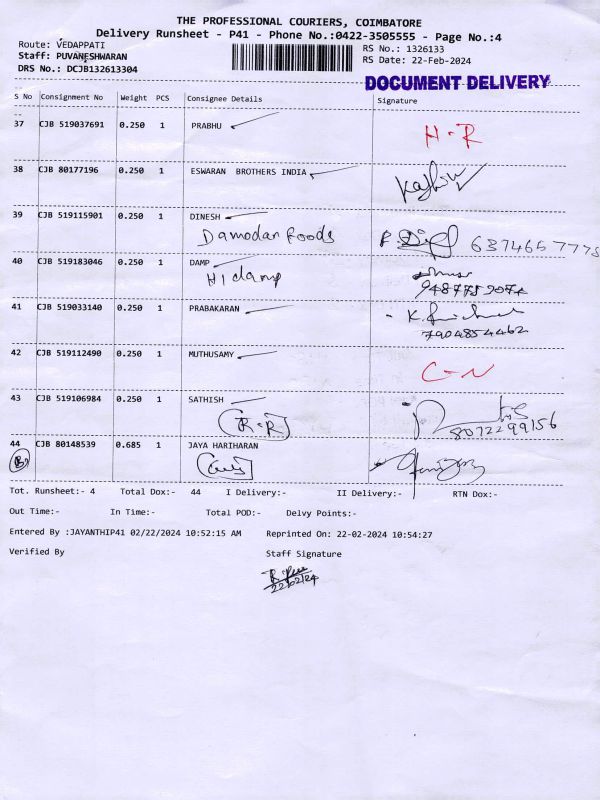 THE PROFESSIONAL COURIERS, COIMBATORE
Delivery Runsheet - P41 - Phone No.:0422-3505555 - Page No.:4
Route: VEDAPPATI
RS No.: 1326133
Staff: PUVANESHWARAN
RS Date: 22-Feb-2024
DRS No.: DCJB132613304
DOCUMENT DELIVERY
S No Consignment No Weight PCS Consignee Details Signature
37 CJB 519037691 0.250 1 PRABHU H-R
38 CJB 80177196 0.250 1 ESWARAN BROTHERS INDIA
39 CJB 519115901 0.250 1 DINESH
Damodar foods 6374657775
40 CJB 519183046 0.250 1 DAMP
Hidamp
41 CJB 519033140 0.250 1 PRABAKARAN
7904854462
42 CJB 519112490 0.250 1 MUTHUSAMY C-N
43 CJB 519106984 0.250 1 SATHISH
R-R 8072299156
44 CJB 80148539 0.685 1 JAYA HARIHARAN
Tot. Runsheet:- 4 Total Dox:- 44 I Delivery:- II Delivery:- RTN Dox:-
Out Time:- In Time:- Total POD:- Delvy Points:-
Entered By :JAYANTHIP41 02/22/2024 10:52:15 AM Reprinted On: 22-02-2024 10:54:27
Verified By Staff Signature
22/02/24